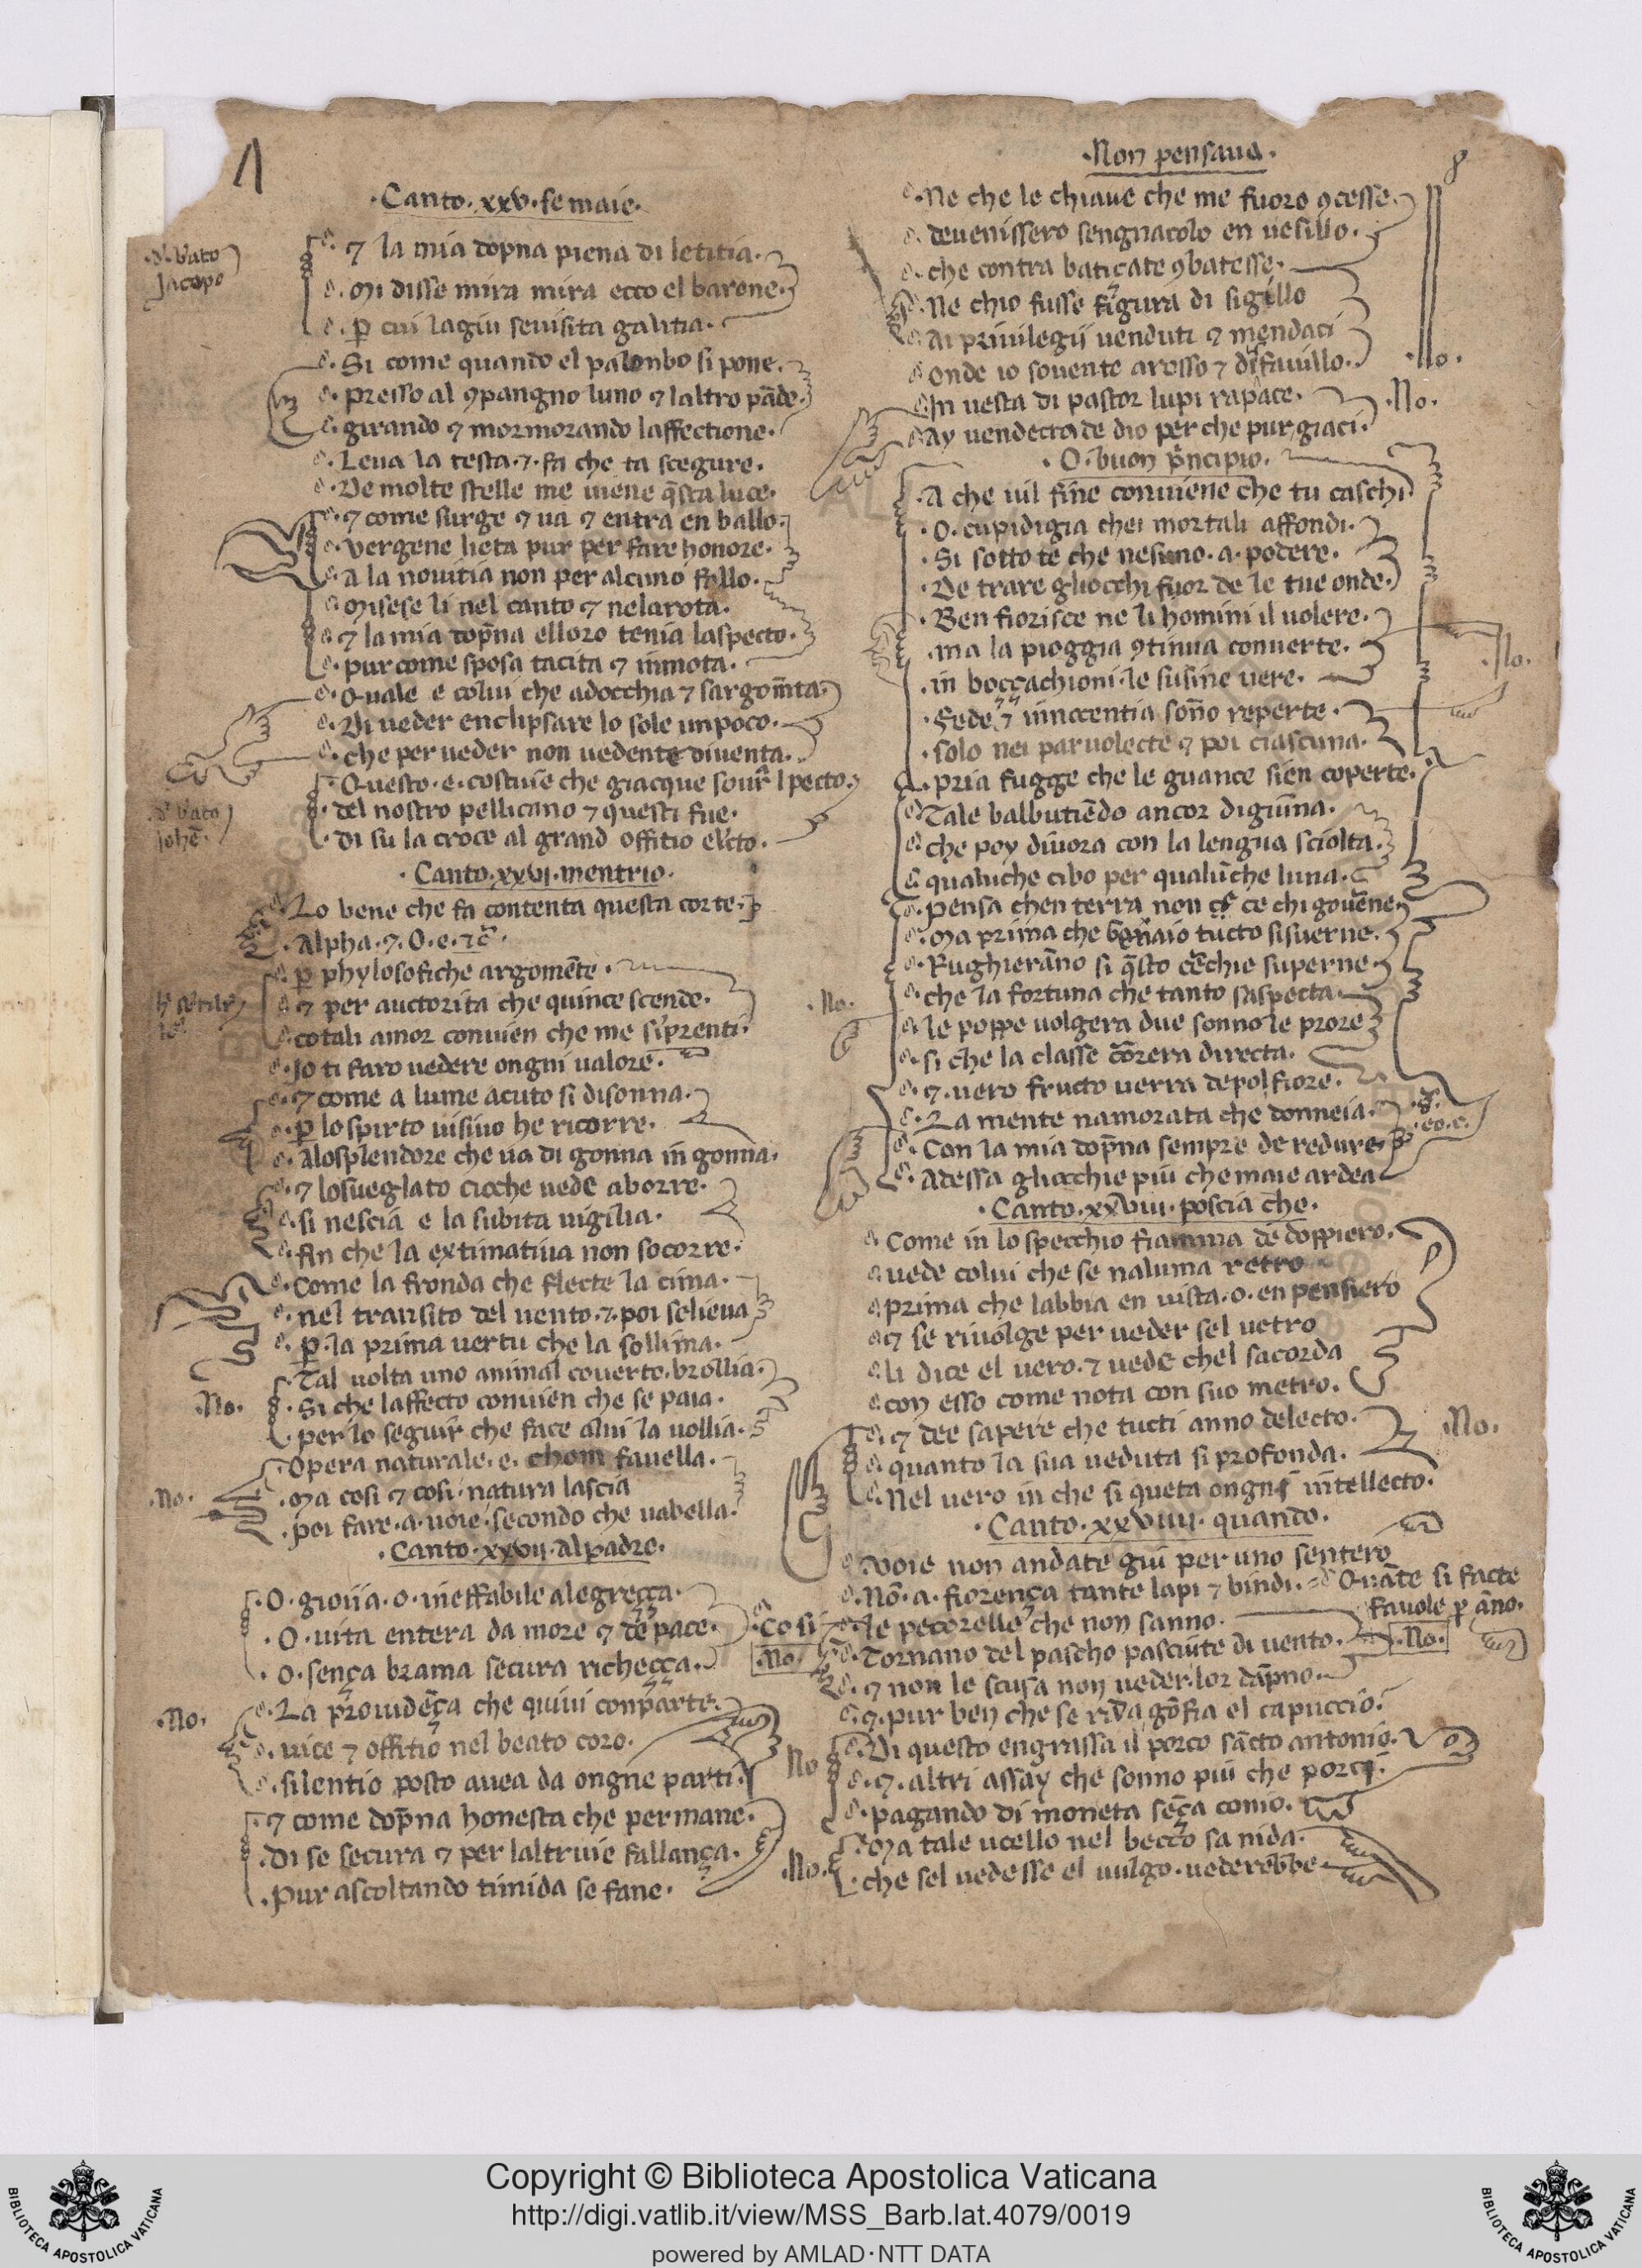 ·Canto·xxv·se maie·
·d· bato
Jacopo
⁊ la mia dopna piena di letitia·
Mi disse mira mira ecco el barone·
ꝑ cui lagiu seuisita galitia·
Si come quando el palonbo si pone·
presso al ꝯpangno luno ⁊ laltro pāde·
girando ⁊ mormorando laffectione·
Leua la testa·⁊·fa che ta scegure·
De molte stelle me uiene q̄sta luce·
⁊ come surge ⁊ ua ⁊ entra en ballo·
vergene lieta pur per fare honore·
a la nouitia non per alcuno fallo·
Misese li nel canto ⁊ nelarota·
⁊ la mia dop̄na elloro tenia laspecto·
pur come sposa tacita ⁊ inmota·
Quale e colui che adocchia ⁊ sargom̄ta·
Di ueder enclipsare lo sole unpoco·
che per ueder non uedente diuenta·
·d· bato
johē·
Questo·e·costuie che giacque sour l pecto·
del nostro pellicano ⁊ questi fue·
di su la croce al grand offitio elcto·
·Canto·xxvi·mentrio·
Lo bene che fa contenta questa corte·
Alpha·⁊·O·e·⁊c̄·
ꝑ phylosofiche argomēte·
⁊ per auctorita che quince scende·
cotali amor conuien che me sīprenti·
Jo ti faro uedere ongni ualore·
⁊ come a lume acuto si disonna·
ꝑ lo spirto uisiuo he ricorre·
Alosplendore che ua di gonna in gonna·
⁊ losueglato cioche uede aborre·
si nescia e la subita uigilia·
fin che la extimatiua non socorre·
Come la fronda che flecte la cima·
nel transito del uento·⁊·poi selieua
ꝑ·la prima uertu che la sollima·
Tal uolta uno animal couerto·brollia·
·No·
Si che laffecto conuien che se paia·
per lo seguir che face alui la uollia·
Opera naturale·e·chom fauella·
·No·
Ma cosi ⁊ cosi·natura lascia
poi fare·a·uoie·secondo che uabella·
·Canto·xxvii·alpadre·
O·gioiia·o·ineffabile alegreçça·
O·uita entera da more ⁊ de pace·
O·sença brama secura richeçça·
·No·
La prouidēça che quiui conparte·
uice ⁊ offitio nel beato coro·
silentio posto auea da ongne parti·
⁊ come dop̄na honesta che permane·
di se secura ⁊ per laltruie fallança·
pur ascoltando timida se fane·
·Non pensaua·
8
Ne che le chiaue che me fuoro ꝯcesse·
deuenissero sengnacolo en uesillo·
che contra baticate ꝯbatesse·
Ne chio fusse figura di sigillo
Ai priuilegii uenduti ⁊ mendaci
onde io souente arosso ⁊ disfauillo·
·No·
In uesta di pastor lupi rapace·
·No·
Ay uendecta de dio per che pur giaci·
·O·buon p̄ncipio·
A che uil fine conuiene che tu caschi
O·cupidigia chei mortali affondi·
Si sotto te che nesuno·a·podere·
De trare gliocchi fuor de le tue onde·
Ben fiorisce ne li homini il uolere·
ma la pioggia ꝯtinua conuerte·
·No·
in boççachioni·le susine uere·
Fede ⁊ innocentia sono reperte·
solo nei paruolecte ⁊ poi ciascuna·
pria fugge che le guance sien coperte·
Tale balbutiēdo ancor digiuna·
che poy diuora con la lengua sciolta·
qualuche cibo per qualūche luna·
pensa chen terra non ce chi gouerne·
Ma prima che genaio tucto sisuerne·
Rughierāno si q̄sto cerchie superne·
·No·
che la fortuna che tanto saspecta·
le poppe uolgera due sonno le prore
si che la classe correra directa·
⁊·uero fructo uerra depol fiore·
La mente namorata che donneia·
Con la mia dop̄na sempre de redure
Adessa gliocchie piu che maie ardea
·Canto·xxviii·poscia che·
Come in lo specchio fiamma de doppiero·
uede colui che se naluma retro
prima che labbia en uista·o·en pensiero
⁊ se riuolge per ueder sel uetro
li dice el uero·⁊ uede chel sacorda
con esso come nota con suo metro·
⁊ dee sapere che tucti anno delecto·
·No·
quanto la sua ueduta si profonda·
Nel uero in che si queta ongni intellecto·
·Canto·xxviiii·quando·
Voie non andate giu per uno sentero
Nō·a·fiorença tante lapi ⁊ bindi· Quāte si facte
fauole ꝑ āno·
·Cosi
le pecorelle che non sanno·
·No·
Tornano del pascho pasciute di uento·
·No·
⁊ non le scusa non ueder·lor dāpno·
⁊·pur ben che se rida gōfia el capuccio·
Di questo engrassa il porco sācto antonio·
No
⁊·altri assay che sonno piu che porci·
pagando di moneta sēça conio·
Ma tale ucello nel beccto sa nida·
·No·
che sel uedesse el uulgo·uederebbe
Copyright © Biblioteca Apostolica Vaticana
http://digi.vatlib.it/view/MSS_Barb.lat.4079/0019
powered by AMLAD·NTT DATA
BIBLIOTECA APOSTOLICA VATICANA
BIBLIOTECA APOSTOLICA VATICANA